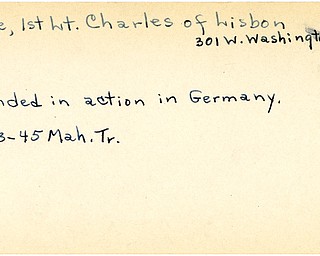 e, 1st Lt. Charles of Lisbon
301 W. Washingt
nded in action in Germany.
3-45 Mah. Tr.